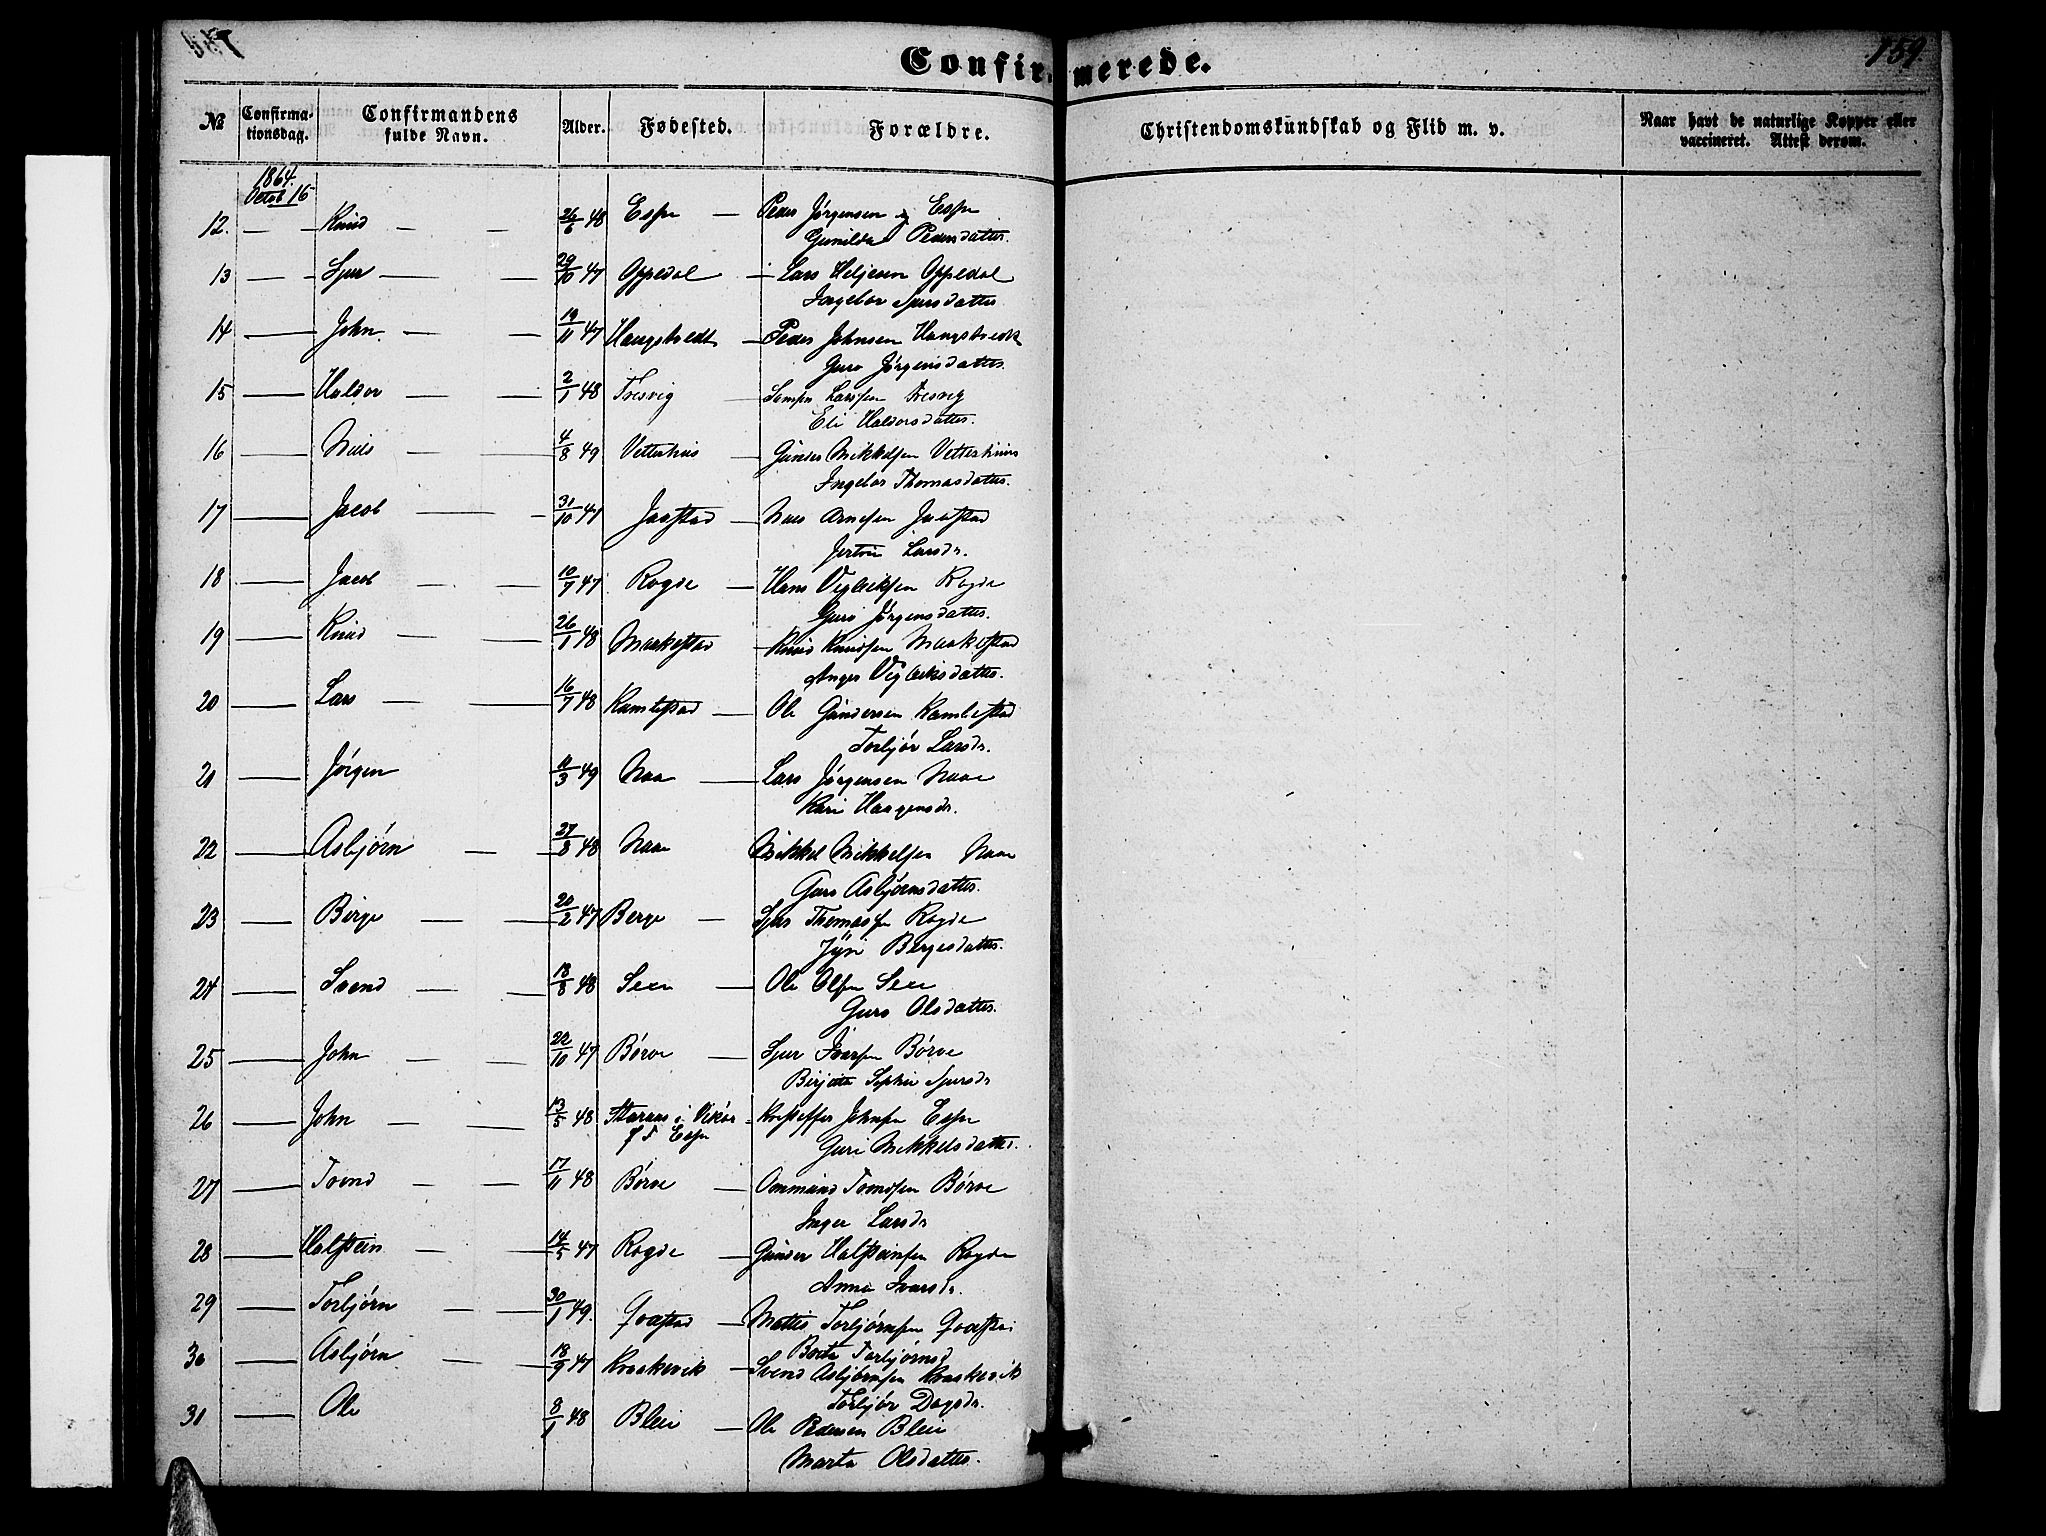 Confirmerede.
159
No
Confirmationsdag.
Confirmandens fulde Navn.
Alder.
Fødested.
Forældre.
Christendomskundskab og Flid m. v.
Naar havt de naturlige Kopper eller vaccineret. Attest derom.
1864.
Octob 16
12. — — Knud — — 26/6 48 Espe — Peder Jørgensen Espe
Gunilda Pedersdatter.
13 — Sjur — — 29/10 47 Oppedal — Lars Heljesen Oppedal
Ingebor Sjursdatter
14 — John — — 19/11 47 Haugstvedt — Peder Johnsen Haugstvedt
Guro Jørgensdatter.
15 — Haldor — 2/1 48 Tresvig — Samsn Larssen Tresvig
Eli Haldorsdatter.
16 — Nils — — 4/8 49 Vetterhus — Gunder Mikkelsen Vetterhuus
Ingebor Thomasdatter.
17 — Jacob — — 31/10 47 Jaastad — Nils Arnesen Jaastad
Larsdr.
18 — Jacob — — 10/7 47 Rogde — Hans Vigleiksen Rogde
Guro Jørgensdatter.
19 — Knud — — 26/1 48 Maakestad — Knud Knudsen Maakestad
Anger Vigleiksdatter.
20 — Lars — — 16/7 48 Kambestad — Ole Gundersen Kambestad
Torbjør Larsdr.
21 — Jørgen 11/3 49 Naa — Lars Jørgensen Naae
Kari Haagensdr.
22 — Asbjørn — — 27/8 48 Naae Mikkel Mikkelsen Naae
Guro Asbjørnsdatter.
23 — Børge — — 20/2 47 Berge — Sjur Thomassen Rogde
Jyri Børgesdatter.
24 — Svend — — 18/8 48 Sexe — Ole Olsen Sexe
Guro Olsdatter.
25 — John — — 22/10 47 Børve — Sjur Ivarsen Børve
Birjitta Sophie Sjursdr
26 — John — — 13/5 48 i Vikør — Kristoffer Johnsen Espe
Espe
Guri Mikkelsdatter.
27 — Tvend — — 17/11 48 Børve — Ommund Tvendsen Børve
Inger Larsdr
28 — Halstein — — 14/5 47 Rogde — Gunder Halsteinsen Rogde
Anna Ivarsdr.
29 — Torbjørn — — 30/1 49. — Mattis Torbjørnsen
Torbjørnsd
30 — Asbjørn — — 18/9 47 Kraakevik — Svend Asbjørnsen Kraakevik
Torbjør Dagsdr.
31 — Ole 8/1 48 Bleie — Ole Pedersen Bleie
Marta Olsdatter.